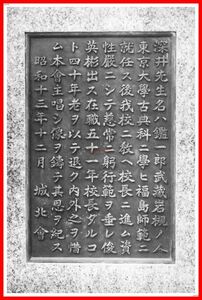 深井先生名ハ鑑一郎武藏岩槻ノ人
東京大學古典科ニ學ヒ福島師範ニ
就任ス後我校ニ教ヘ校長ニ進ム資
性嚴ニシテ慈常ニ躬行範ヲ垂レ俊
英彬出ス在職五十一年校長タルコ
ト四十年老ヲ以テ退ク内外之ヲ惜
ム本會主唱シ像ヲ鑄テ其恩ヲ紀ス
昭和十三年十二月 城北會